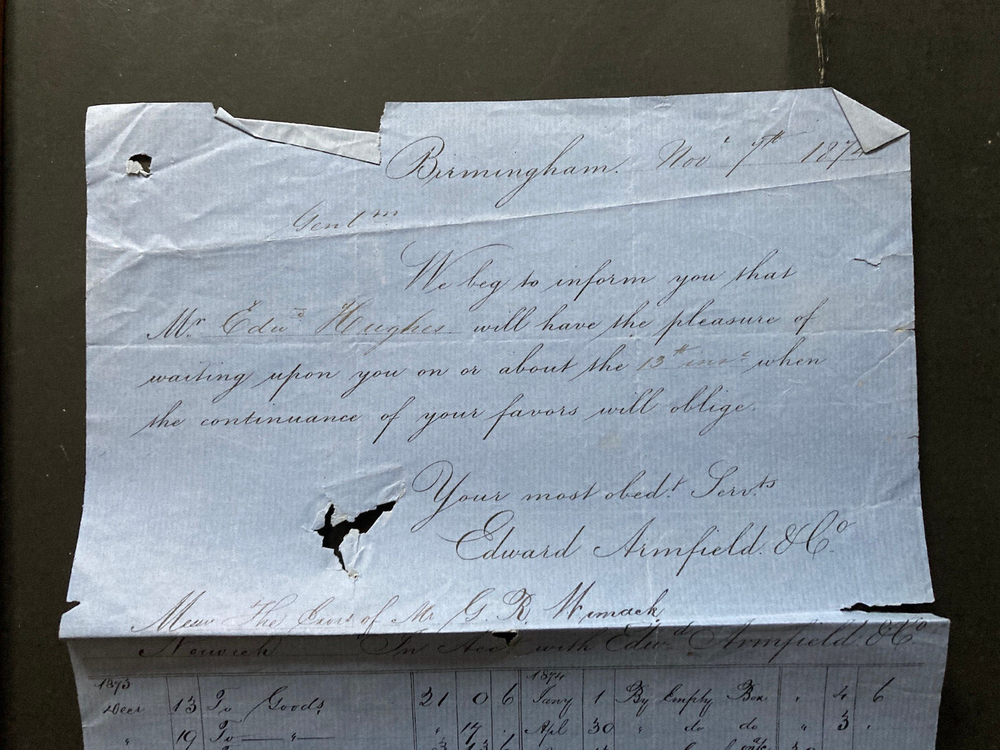 Birmingham. Novr 7th 1874
Gentm
We beg to inform you that
Mr Edwd Hughes will have the pleasure of
waiting upon you on or about the 13th inst when
the continuance of your favors will oblige.
Your most obedt. Servts
Edward Armfield. & Co
Messrs The Exors of Mr G. R. Womack
Norwich In Acct with Edwd Armfield & Co
1873 1874
Decr 13 To Goods 21 0 6 Jany 1 By Empty Box " 4 6
" 19 To — " — " 14 . Apl 30 " do do " 3 .